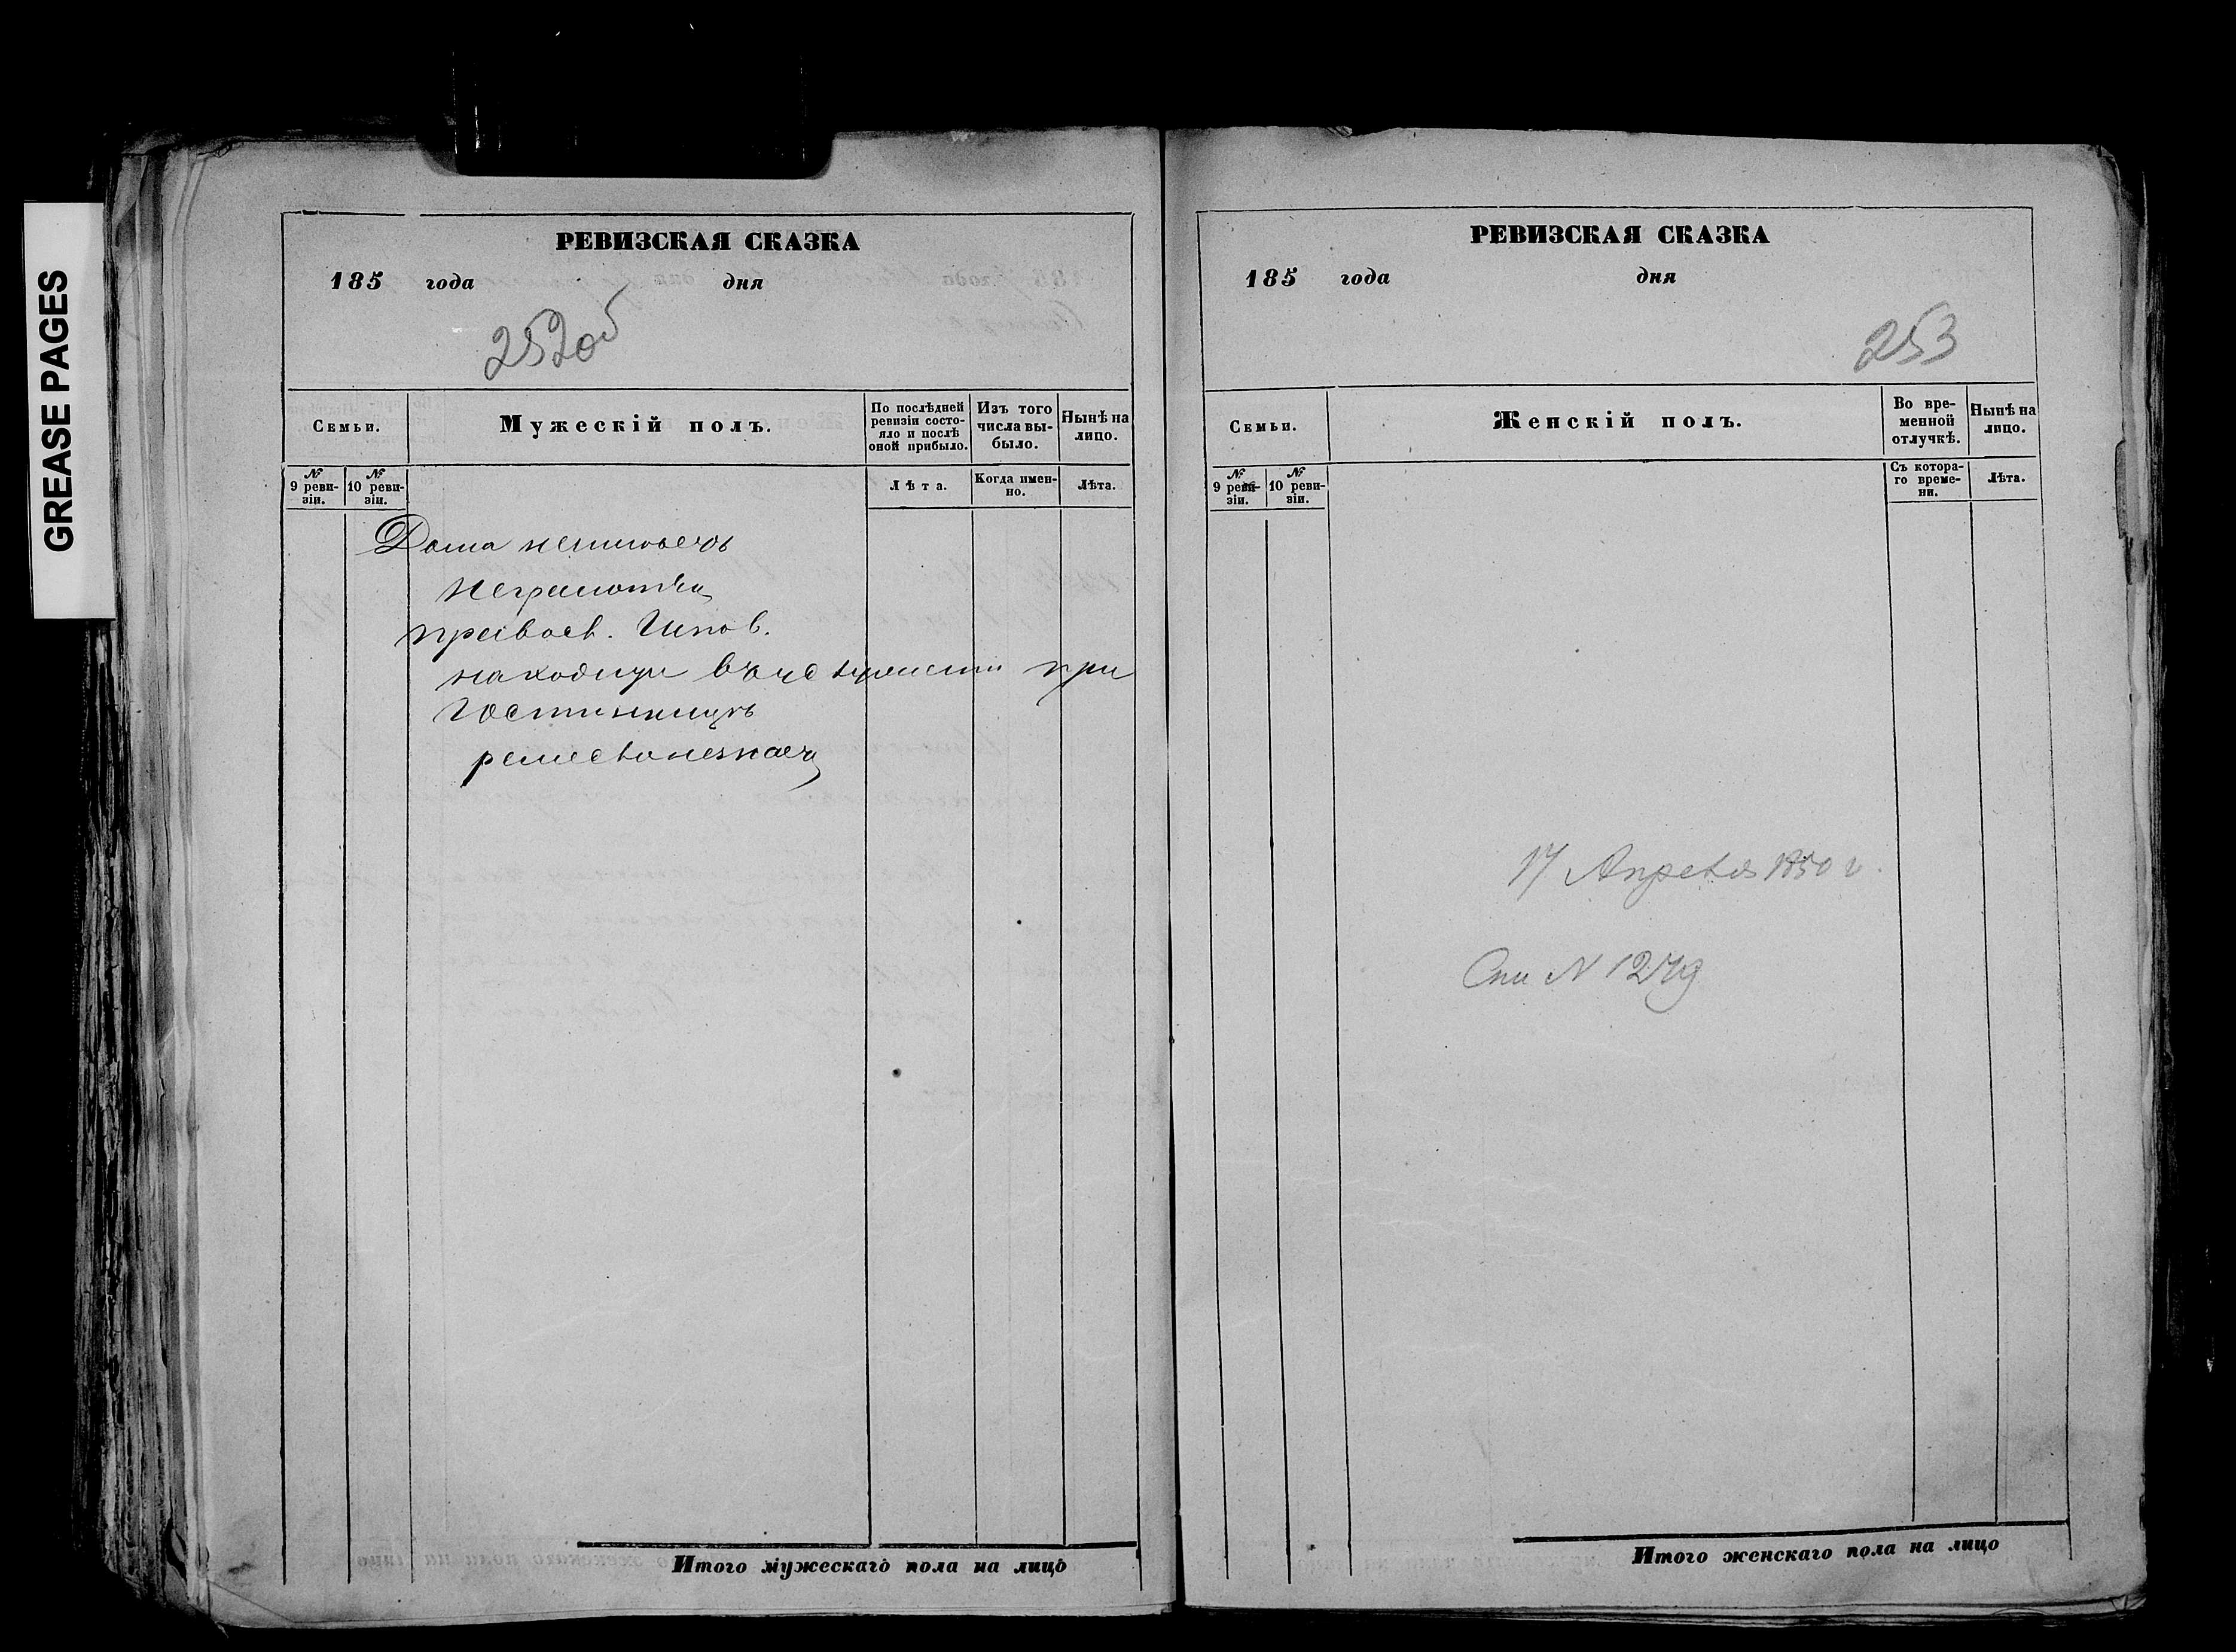 GREASE PAGES
РЕВИЗСКАЯ СКАЗКА
185 года дня
252 об
Семьи.
Мужескій полъ.
По послѣдней ревизіи состояло и послѣ оной прибыло.
Изъ того числа выбыло.
Нынѣ на лицо.
№ 9 ревизіи.
№ 10 ревизіи.
Лѣта.
Когда именно.
Лѣта.
Дома неимѣетъ
неграмотны
правосл. Испов.
находится въ при
гостинницѣ
ремесло незнаетъ
Итого мужескаго пола на лицо
РЕВИЗСКАЯ СКАЗКА
185 года дня
253
Семьи.
Женскій полъ.
Во временной отлучкѣ.
Нынѣ на лицо.
№ 9 ревизіи.
№ 10 ревизіи.
Съ котораго времени.
Лѣта.
17 Апреля 1850 г.
N 1279
Итого женскаго пола на лицо